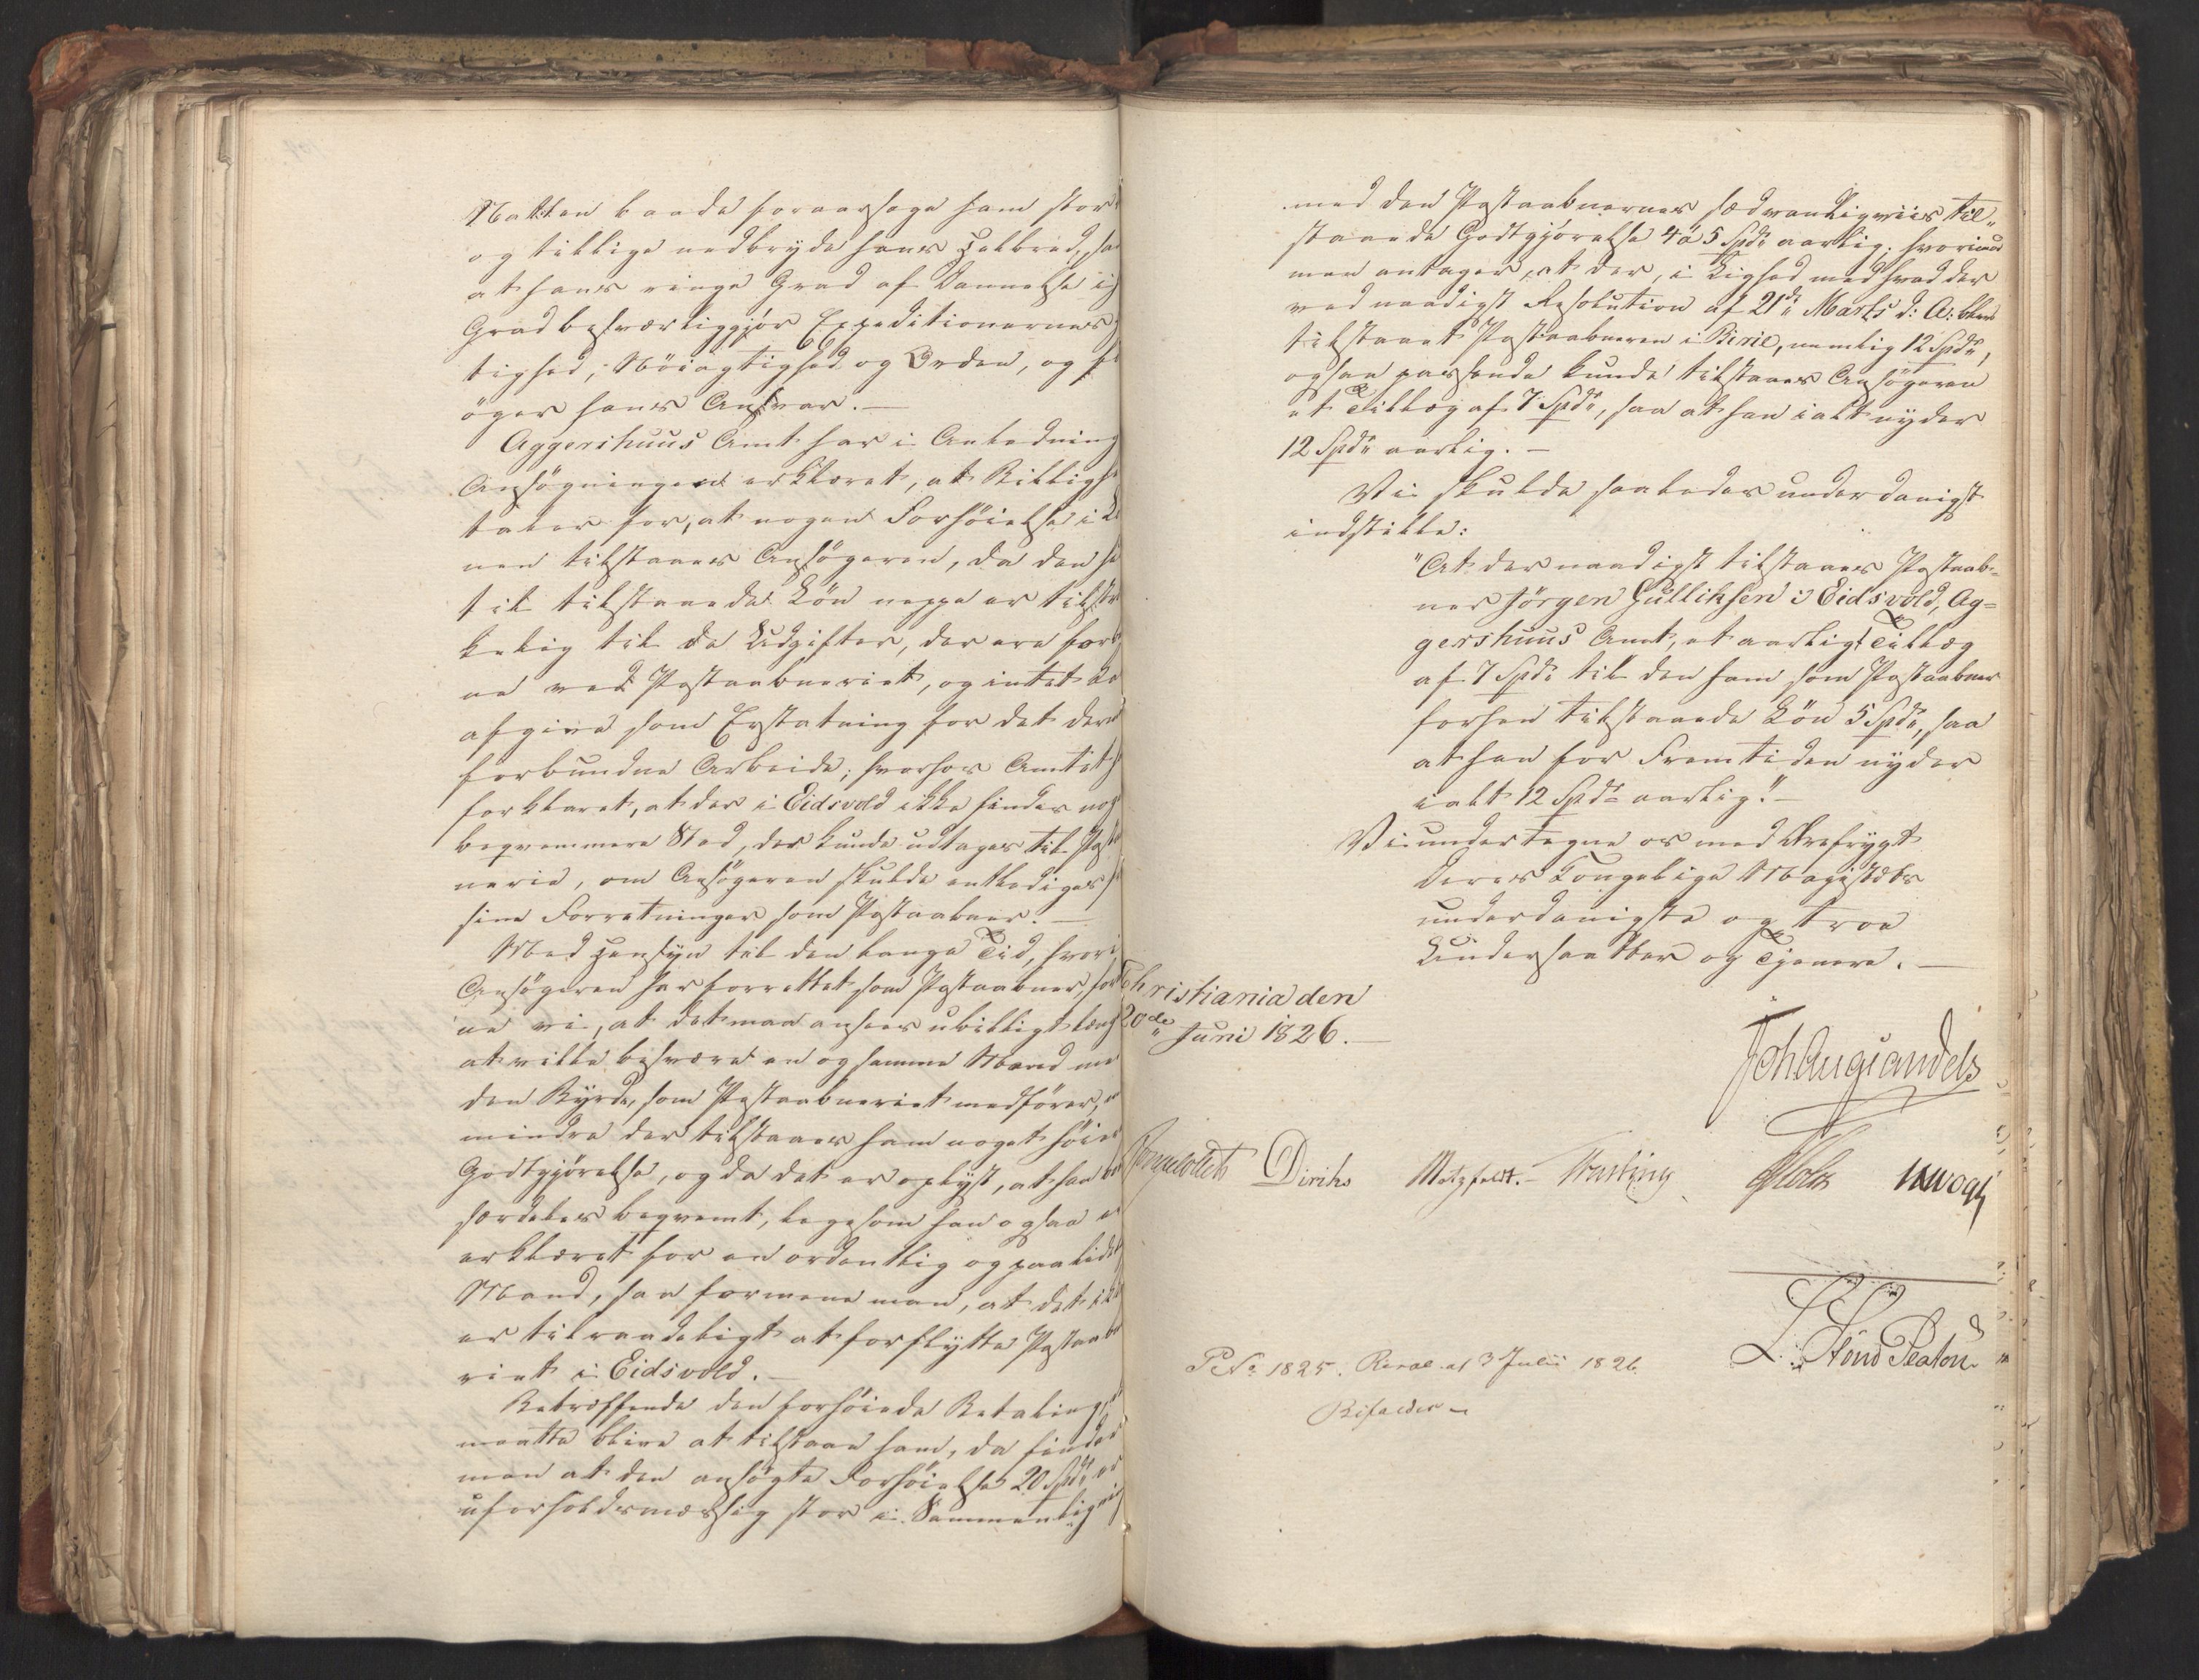 Natten baade foraarsage ham stor
og tillige nedbryde hans Helbred, saa
at hans ringe Grad af Dannelse i
Grad besværliggjør Expeditionernes
tighed, Nöiagtighed og Orden, og
öger hans Ansvar. —
Aggershuus Amt har i Anledning
Ansögningen erklæret, at Billigh
taler for, at nogen Forhöielse i Lö
nen tilstaaes Ansögeren, da den h
til tilstaaede Lön neppe er tilstr
kelig til de Udgifter, der ere forb
ne med Postaabneriet, og intet ka
afgive som Erstatning for det der
forbundne Arbeide; hvorhos Amtet h
forklaret, at der i Eidsvold ikke findes nog
beqvemmere Sted, der kunde udtages til Posta
nerie, om Ansögeren skulde entlediges f
sine Forretninger som Postaabner. —
Med Hensyn til den lange Tid, hvori
Ansögeren har forrettet som Postaabner, for
ne vi, at det maa ansees ubilligt læng
at ville besvære en og samme Mand me
den Byrde, som Postaabneriet medförer,
mindre der tilstaaes ham noget höie
Godtgjörelse, og da det er oplyst, at han bo
særdeles beqvemt, ligesom han ogsaa er
erklæret for en ordentlig og paalide
Mand, saa formene man, at det ikke
er tilraadeligt at forflytte Postaabn
riet i Eidsvold. —
Betræffende den forhöiede Betaling,
maatte blive at tilstaae ham, da finder
man at den ansögte Forhöielse 20 Spd er
uforholdsmæssig stor i Sammenlign
med den Postaabnernes sædvanligviis til„
staaede Godtgjörelse 4 à 5 Spd aarlig; hvorimod
man antager, at der, i Lighed med hvad der
ved naadigst Resolution af 21de Marts d: A: blev
tilstaaet Postaabneren i Birie, nemlig 12 Spd,
ogsaa passende kunde tilstaaes Ansögeren
et Tillæg af 7 Spd, saa at han ialt nyder
12 Spd aarlig. —
Vi skulde saaledes underdanigst
indstille:
"At der naadigst tilstaaes Postaab-
ner Jörgen Gulliksen i Eidsvold, Ag=
gershuus Amt, et aarligt Tillæg
af 7 Spd til den ham som Postaabner
forhen tilstaaede Lön 5 Spd, saa
at han for Fremtiden nyder
ialt 12 Spd aarlig." —
Vi undertegne os med Ærefrygt
Deres Kongelige Majestæts
underdanigste og troe
Undersaatter og Tjenere. —
Christiania den
20de Juni 1826. —
Joh Aug Sandels
Diriks Motzfeldt. Fasting Holst
P No 1825. Resol. af 3 Julii 1826.
Bifaldes —